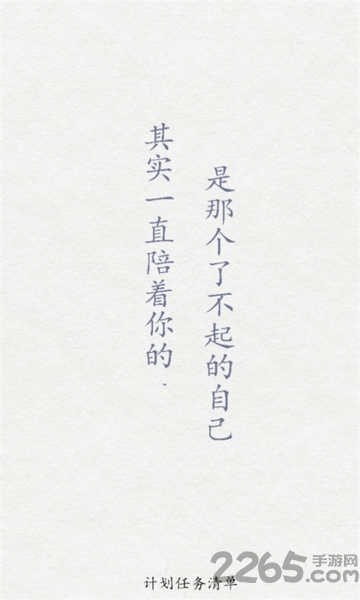 其实一直陪着你的.
是那个了不起的自己
计划任务清单
2265手游网
.com